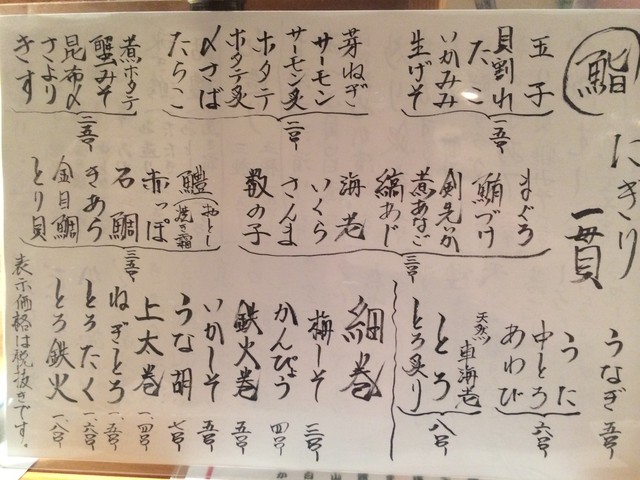 鮨
にぎり
一貫
玉子
貝割れ
たこ
いかみみ
生げそ
一五〇ー
芽ねぎ
サーモン
サーモン炙
ホタテ
ホタテ炙
〆さば
たらこ
二〇〇ー
煮ホタテ
蟹みそ
昆布〆
さより
きす
二五〇ー
まぐろ
鮪づけ
剣先いか
煮あなご
縞あじ
海老
いくら
さんま
数の子
三〇〇ー
鱧(おとし 焼き霜)
赤っぽ
石鯛
きあら
金目鯛
とり貝
三五〇ー
うなぎ 五〇〇ー
中とろ
あわび
六〇〇ー
天然 車海老
とろ
とろ炙り
八〇〇ー
細巻
梅しそ 三〇〇ー
かんぴょう 四〇〇ー
鉄火巻 五〇〇ー
いかしそ 五〇〇ー
うな胡 七〇〇ー
上太巻 一、四〇〇ー
ねぎとろ 一、五〇〇ー
とろたく 一、六〇〇ー
とろ鉄火 一、八〇〇ー
表示価格は税抜きです。